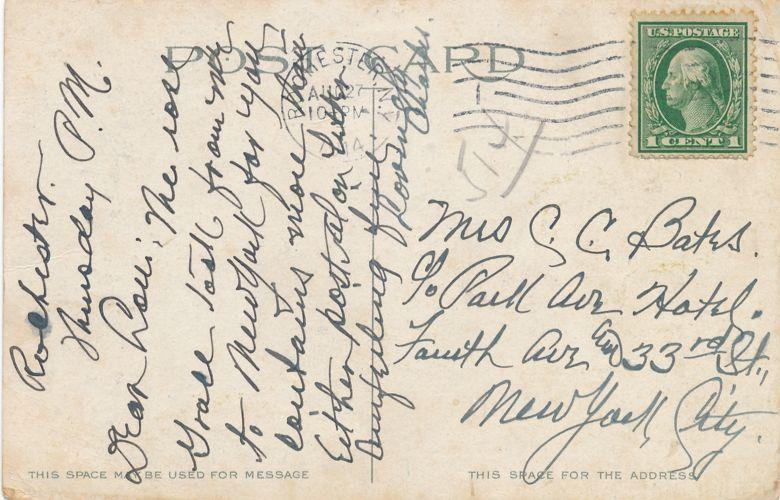 POST CARD
U.S. POSTAGE
1 CENT 1
ROCHESTER, N.Y.
AUG 27
10 PM
1914
514
Rochester.
Thursday P.M.
Dear Loui: The rose
Grace took from me
to New York for you
contains more than
Either postal or letter
Mrs C. C. Bates.
c/o Park Ave Hotel.
Fourth Ave and 33rd St.,
New York City.
THIS SPACE MAY BE USED FOR MESSAGE
THIS SPACE FOR THE ADDRESS